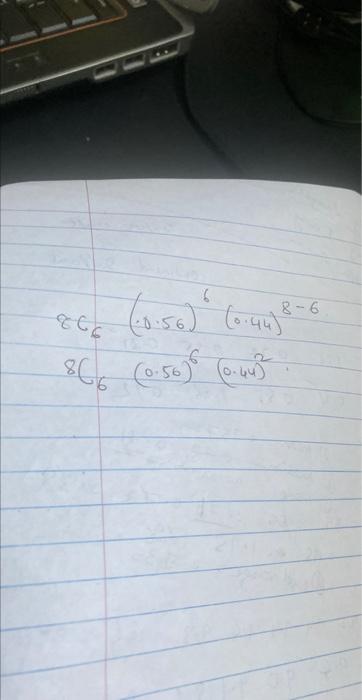 8C₆ (0.56)⁶ (0.44)⁸⁻⁶
8C₆ (0.56)⁶ (0.44)².